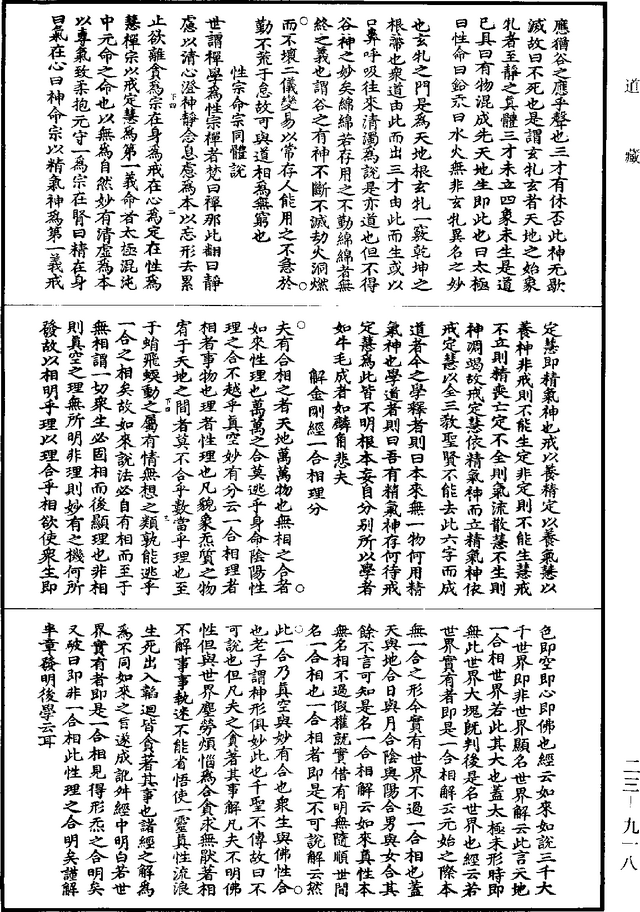 道藏
應猶谷之應乎聲也三才有休否此神无歇
滅故曰不死也是謂玄牝玄者天地之始象
牝者至靜之真體三才未立四象未生是道
已具曰有物混成先天地生即此也曰太極
曰性命曰鉛汞曰水火無非玄牝異名之妙
也玄牝之門是為天地根玄牝一竅乾坤之
根蒂也衆道由此而出三才由此而生或以
口鼻呼吸往來清濁為說是亦道也但不得
谷神之妙矣綿綿若存用之不勤綿綿者無
終之義也謂谷之有神不斷不滅劫火洞燃
而不壞二儀變易以常存人能用之不怠於
勤不荒于怠故可與道相為無窮也
性宗命宗同體說
世謂禪學為性宗禪者梵曰禪那此翻曰靜
慮以清心澄神靜念息慮為本以忘形去累
止欲離貪為宗在身為戒在心為定在性為
慧禪宗以戒定慧為第一義命者太極混沌
中元命之命也以無為自然妙有清虛為本
以專氣致柔抱元守一為宗在腎曰精在身
曰氣在心曰神命宗以精氣神為第一義戒
定慧即精氣神也戒以養精定以養氣慧以
養神非戒則不能生定非定則不能生慧戒
不立則精喪亡定不全則氣流散慧不生則
神凋竭故戒定慧依精氣神而立精氣神依
戒定慧以全三教聖賢不能去此六字而成
道者今之學釋者則曰本來無一物何用精
氣神也學道者則曰吾有精氣神存何待戒
定慧為此皆不明根本妄自分別所以學者
如牛毛成者如麟角悲夫
解金剛經一合相理分
夫有合相之者天地萬萬物也無相之合者
如來性理也萬萬之合莫逃乎身命陰陽性
理之合不越乎真空妙有分云一合相理者
相者事物也理者性理也凡貌象炁質之物
宥于天地之間者莫不合乎數當乎理也至
于蛸飛蝡動之屬有情無想之類孰能逃乎
一合之相矣故如來說法必自有相而至于
無相謂一切衆生必因相而後顯理也非相
則真空之理無所明非理則妙有之機何所
發故以相明乎理以理合乎相欲使衆生即
色即空即心即佛也經云如來如說三千大
千世界即非世界顯名世界解云此言天地
一合相世界若此其大也蓋太極未形時即
無此世界大塊既判後是名世界也經云若
世界實有者即是一合相解云元始之際本
無一合之形今實有世界不過一合相也蓋
天與地合日與月合陰與陽合男與女合其
餘不言可知是名一合相解云如來真性本
無名相不過假權就實借有明無隨順世間
名一合相也一合相者即是不可說解云然
此一合乃真空與妙有合也衆生與佛性合
也老子謂神形俱妙此也千聖不傳故曰不
可說也但凡夫之貪著其事解凡夫不明佛
性但與世界塵勞煩惱為合貪求無猒著相
不解事事執迷不能省悟使一靈真性流浪
生死出入輪迴皆貪著其事也諸經之解為
為不同如來之旨遂成訛舛經中明白若世
界實有者即是一合相見得形炁之合明矣
又破曰即非一合相此性理之合明矣謹解
率章發明後學云耳
二三－九一八